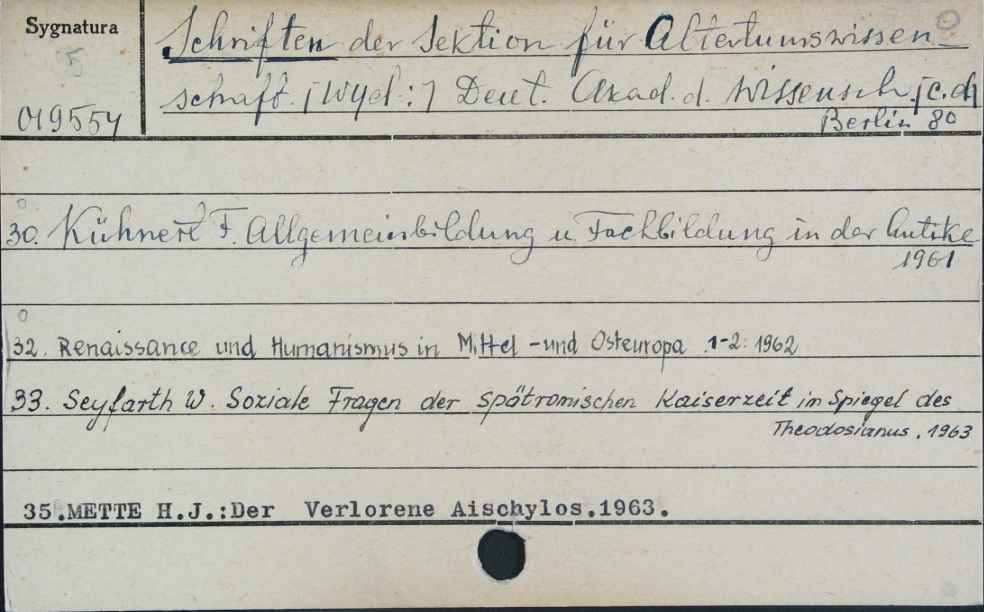 Sygnatura
5
019554
Schriften der Sektion für Altertumswissen-
schaft. [Wyd:] Deut. Akad. d. Wissensch. [c.d]
Berlin 80
30. Kühnert F. Allgemeinbildung u. Fachbildung in der Antike
1961
32. Renaissance und Humanismus in Mittel -und Osteuropa .1-2: 1962
33. Seyfarth W. Soziale Fragen der spätromischen Kaiserzeit im Spiegel des
Theodosianus . 1963
35.METTE H.J.:Der Verlorene Aischylos.1963.